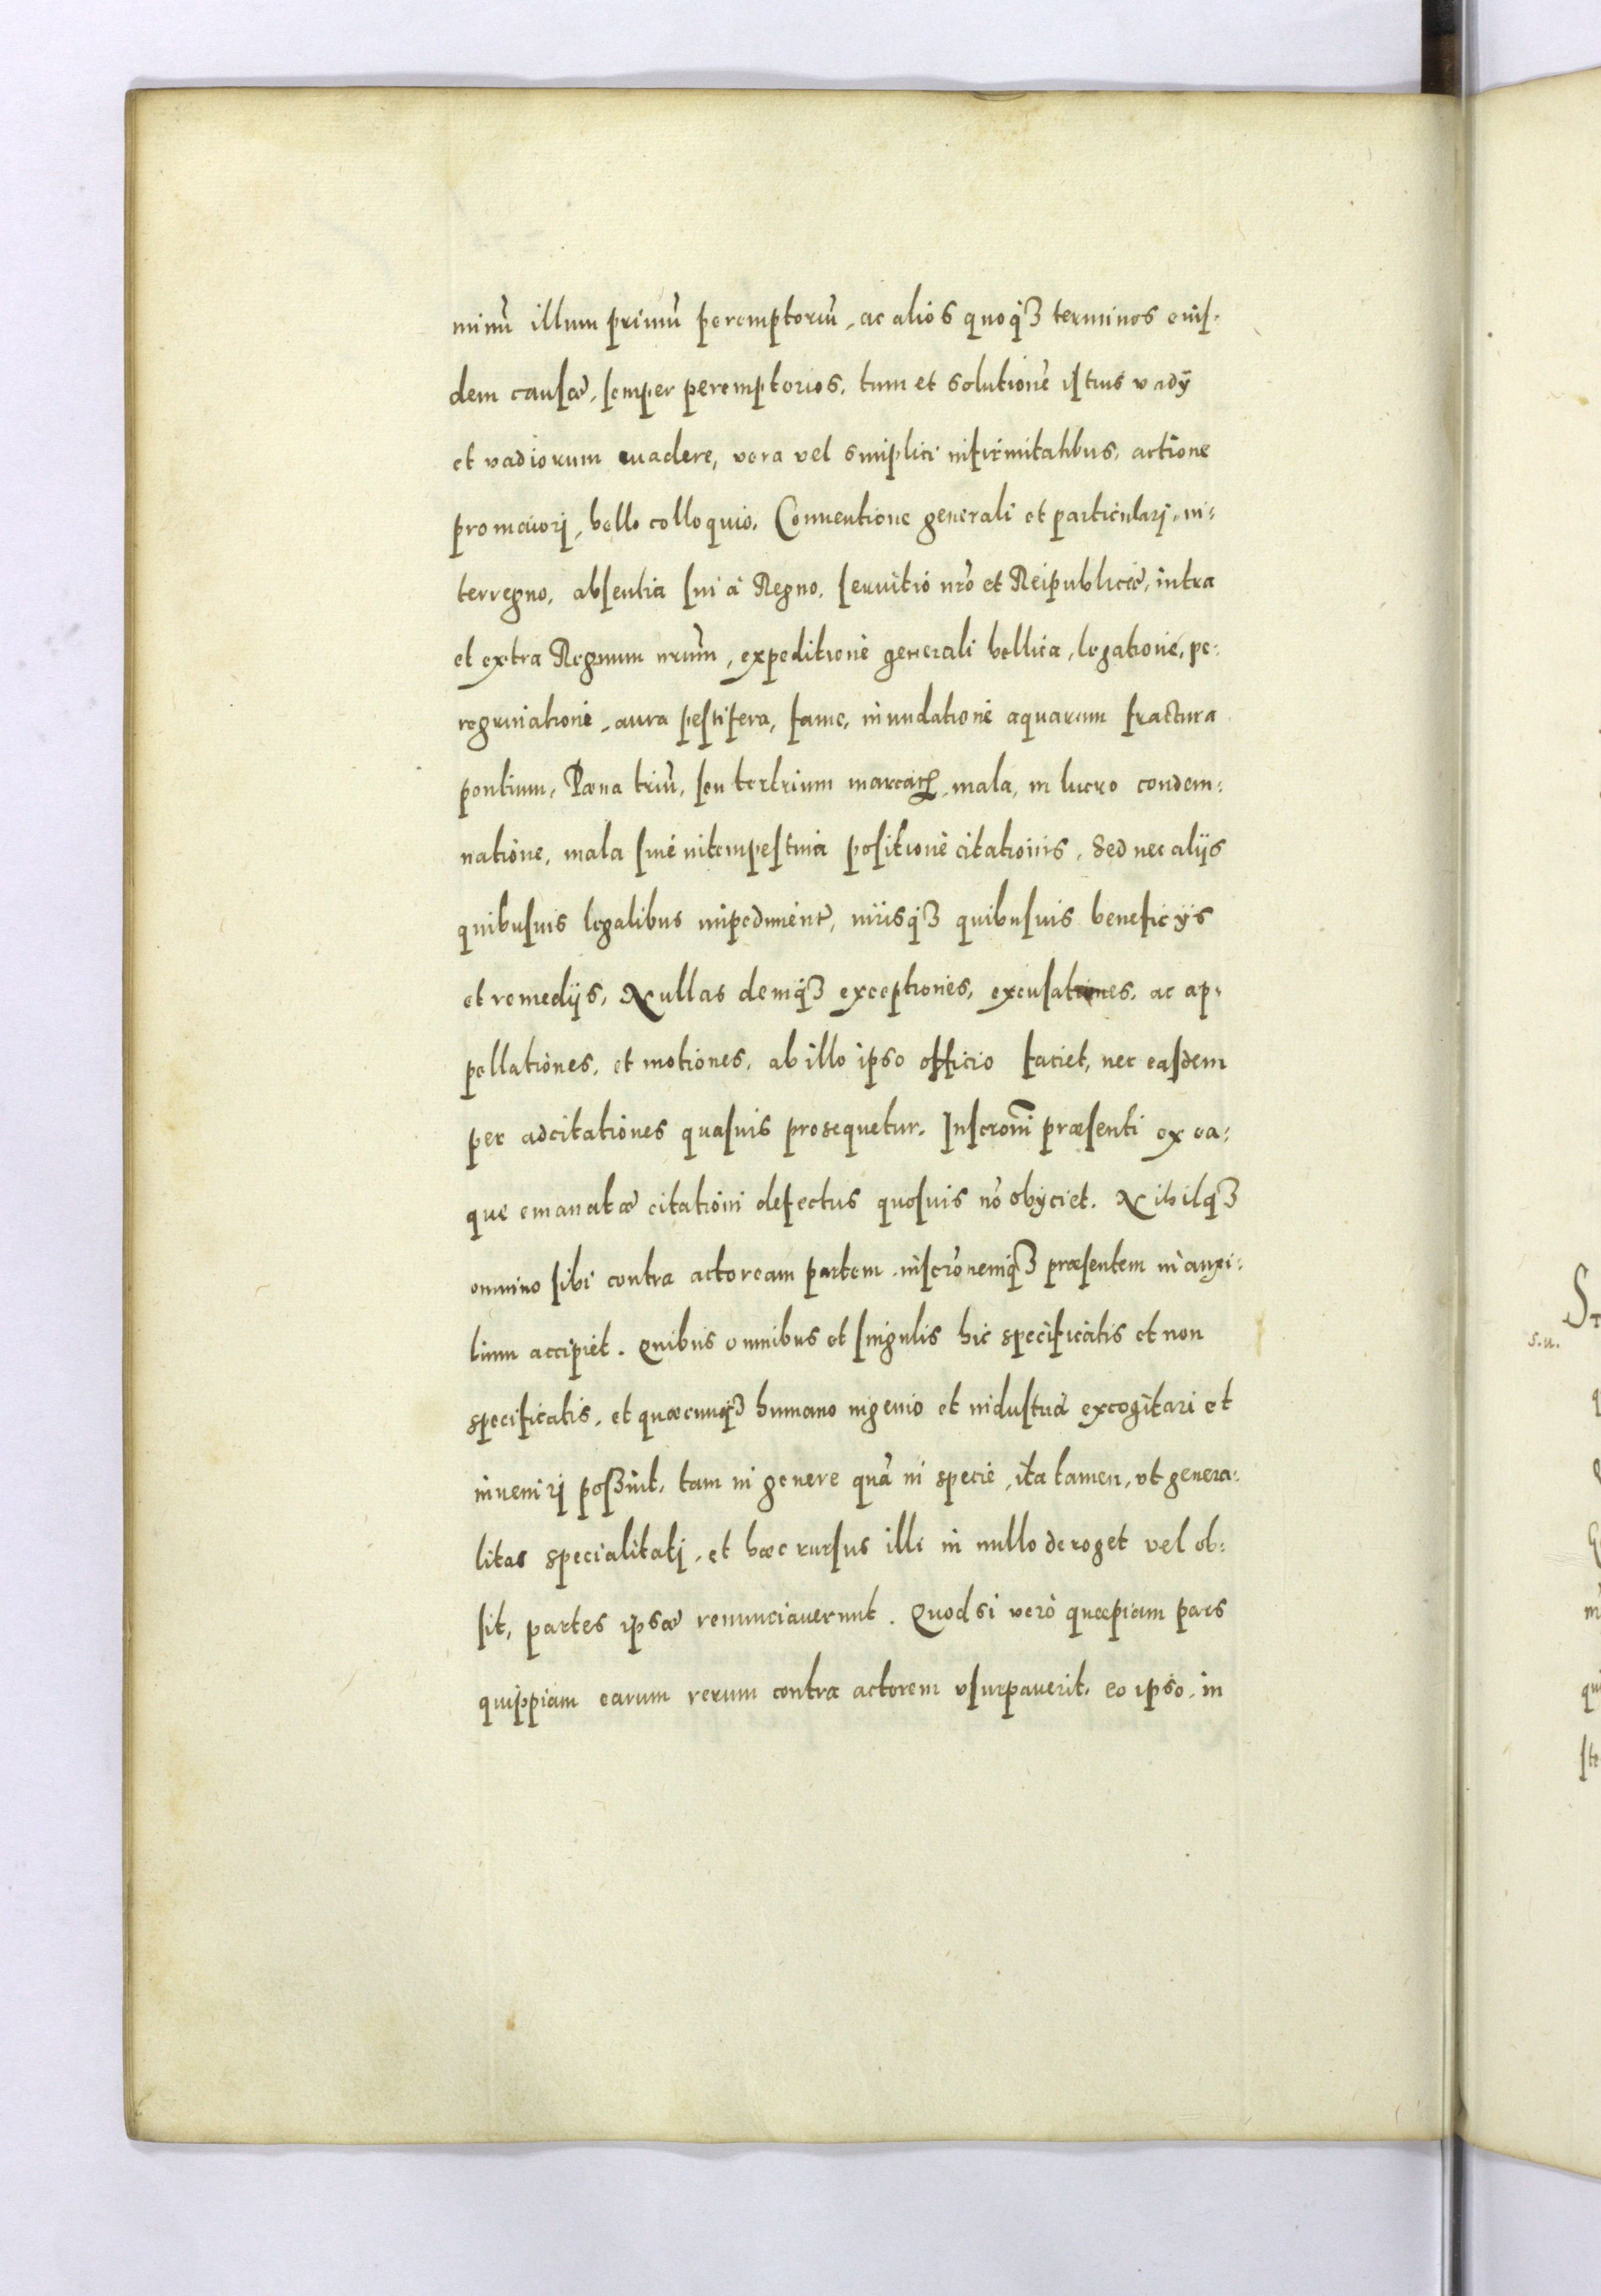 minũ illum primũ peremptoriũ, ac alios quoq₃ terminos eiusſ-
dem cauſæ, ſemper peremptorios, tum et solutionẽ iſtius vadÿ
et vadiorum euadere, vera vel simplici infirmitatibus, actione
pro maiori, bello colloquio, Conuentione generali et particulari, in-
terregno, abſentia ſui à Regno, ſeruitio nrõ et Reipublicæ, intra
et extra Regnum nrũm, expeditione generali bellica, legatione, pe-
regrinatione, aura peſtifera, fame, inundatione aquarum fractura
pontium, Pœna triũ, ſeu tertrium marcarꝝ, mala, in lucro condem-
natione, mala ſiue intempeſtiua poſitione citationis. Sed nec alijs
quibuſuis legalibus impedimentꝭ, iurisq₃ quibuſuis beneficÿs
et remedijs. Nullas deniq₃ exceptiones, excuſationes, ac ap-
pellationes, et motiones, ab illo ipso officio faciet, nec eaſdem
per adcitationes quaſuis prosequetur. Inscrõni præſenti ex ea-
que emanatæ citationi defectus quoſuis nõ obÿciet. Nihilq₃
omnino ſibi contra actoream partem, inscrõnemq₃ præſentem in auxi-
lium accipiet. Quibus omnibus et ſingulis hic specificatis et non
specificatis, et quæcunq₃ humano ingenio et induſtria excogitari et
inueniri poſsint, tam in genere quã in specie, ita tamen, vt genera-
litas specialitati, et hæc rurſus illi in nullo deroget vel ob-
ſit, partes ipsæ renunciauerunt. Quod si verò quæpiam pars
quippiam earum rerum contra actorem vſurpauerit, eo ipso, in
s.u.